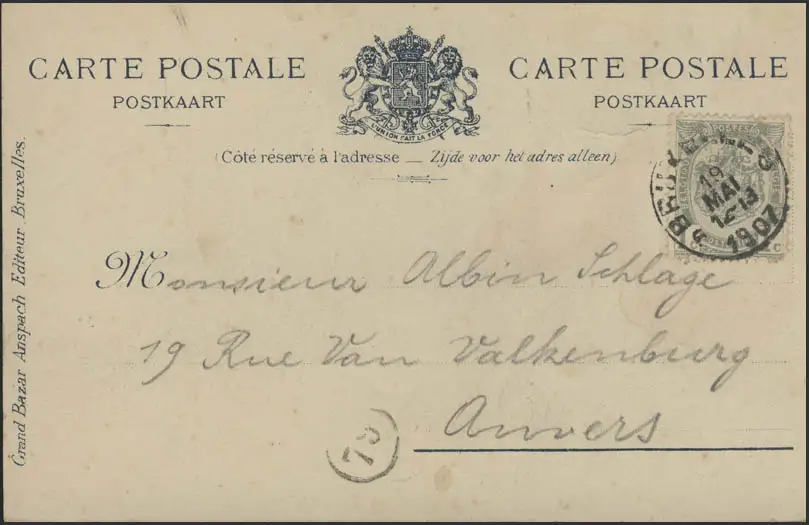 CARTE POSTALE
POSTKAART
L'UNION FAIT LA FORCE
CARTE POSTALE
POSTKAART
(Côté réservé à l'adresse — Zijde voor het adres alleen)
19
MAI
1907
Monsieur Albin Schlage
19 Rue Van Valkenburg
Anvers
Grand Bazar Anspach Editeur Bruxelles.